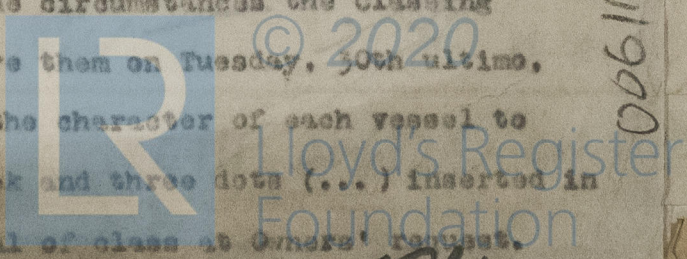 circumstances the Classing
them on Tuesday, 30th ultimo,
the character of each vessel to
and three dots (...) inserted in
of class at Owners' request.
© 2020
LR
Lloyd's Register
Foundation